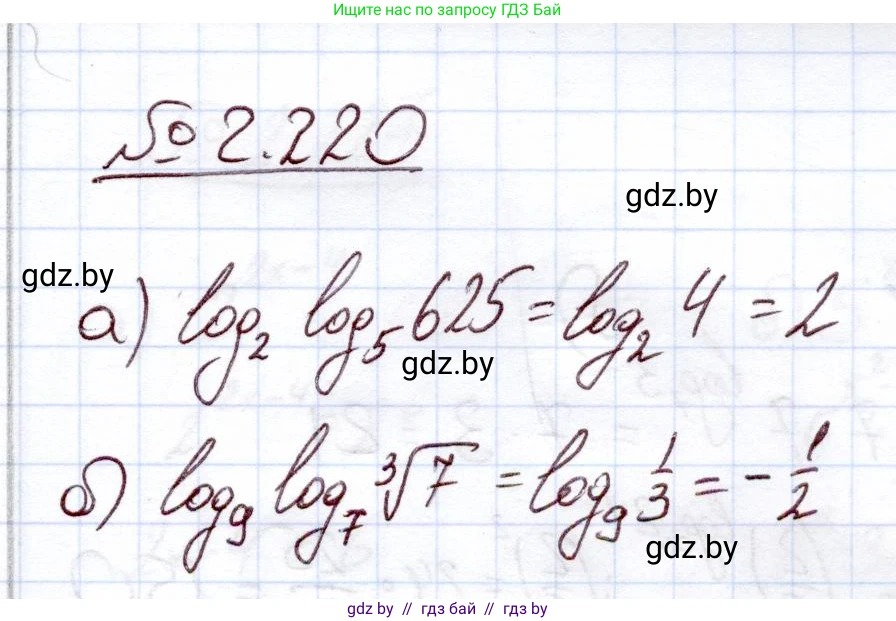 Ищите нас по запросу ГДЗ Бай
№ 2.220
gdz.by
gdz.by
а) log₂ log₅ 625 = log₂ 4 = 2
gdz.by
б) log₉ log₇ ∛7 = log₉ 1/3 = - 1/2
gdz.by
gdz.by // гдз бай // гдз by